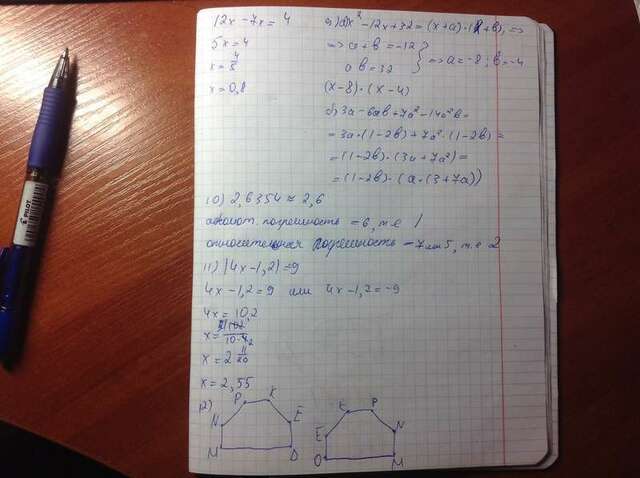 12x - 7x = 4
5x = 4
x = 4/5
x = 0,8
9) a) x² - 12x + 32 = (x + a) · (x + b), =>
=> a + b = -12
ab = 32
} => a = -8; b = -4
(x - 8) · (x - 4)
б) 3a - 6ab + 7a² - 14a²b =
= 3a · (1 - 2b) + 7a² · (1 - 2b) =
= (1 - 2b) · (3a + 7a²) =
= (1 - 2b) · (a · (3 + 7a))
10) 2,6354 ≈ 2,6
абсолют. погрешность = 6, т.е 1
относительная погрешность - 7 или 5, т.е 2
11) |4x - 1,2| = 9
4x - 1,2 = 9 или 4x - 1,2 = -9
4x = 10,2
x = 2 11/20
x = 2,55
12)
P K
N E
M D
K P
E N
O M
PILOT